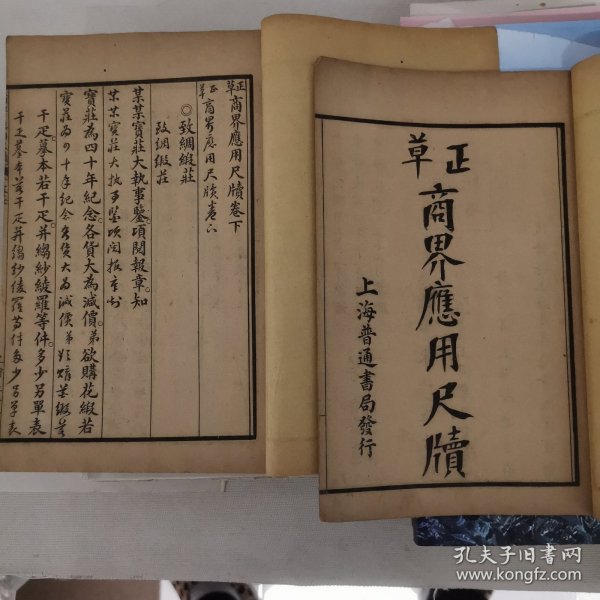 正草
商界應用尺牘
上海普通書局發行
正草商界應用尺牘卷下
正草商界應用尺牘卷下
◎致綢緞莊
致綢緞莊
某某寶莊大執事鑒。頃閱報章。知
某某寶莊大執事鑒頃閱報章知
寶莊為四十年紀念。各貨大為減價。弟欲購花緞若
寶莊為四十年紀念各貨大為減價弟欲購花緞若
干疋。摹本若干疋。并縐紗綾羅等件。多少另單表
干疋摹本若干疋并縐紗綾羅等件多少另單表
孔夫子旧书网
www.kongfz.com